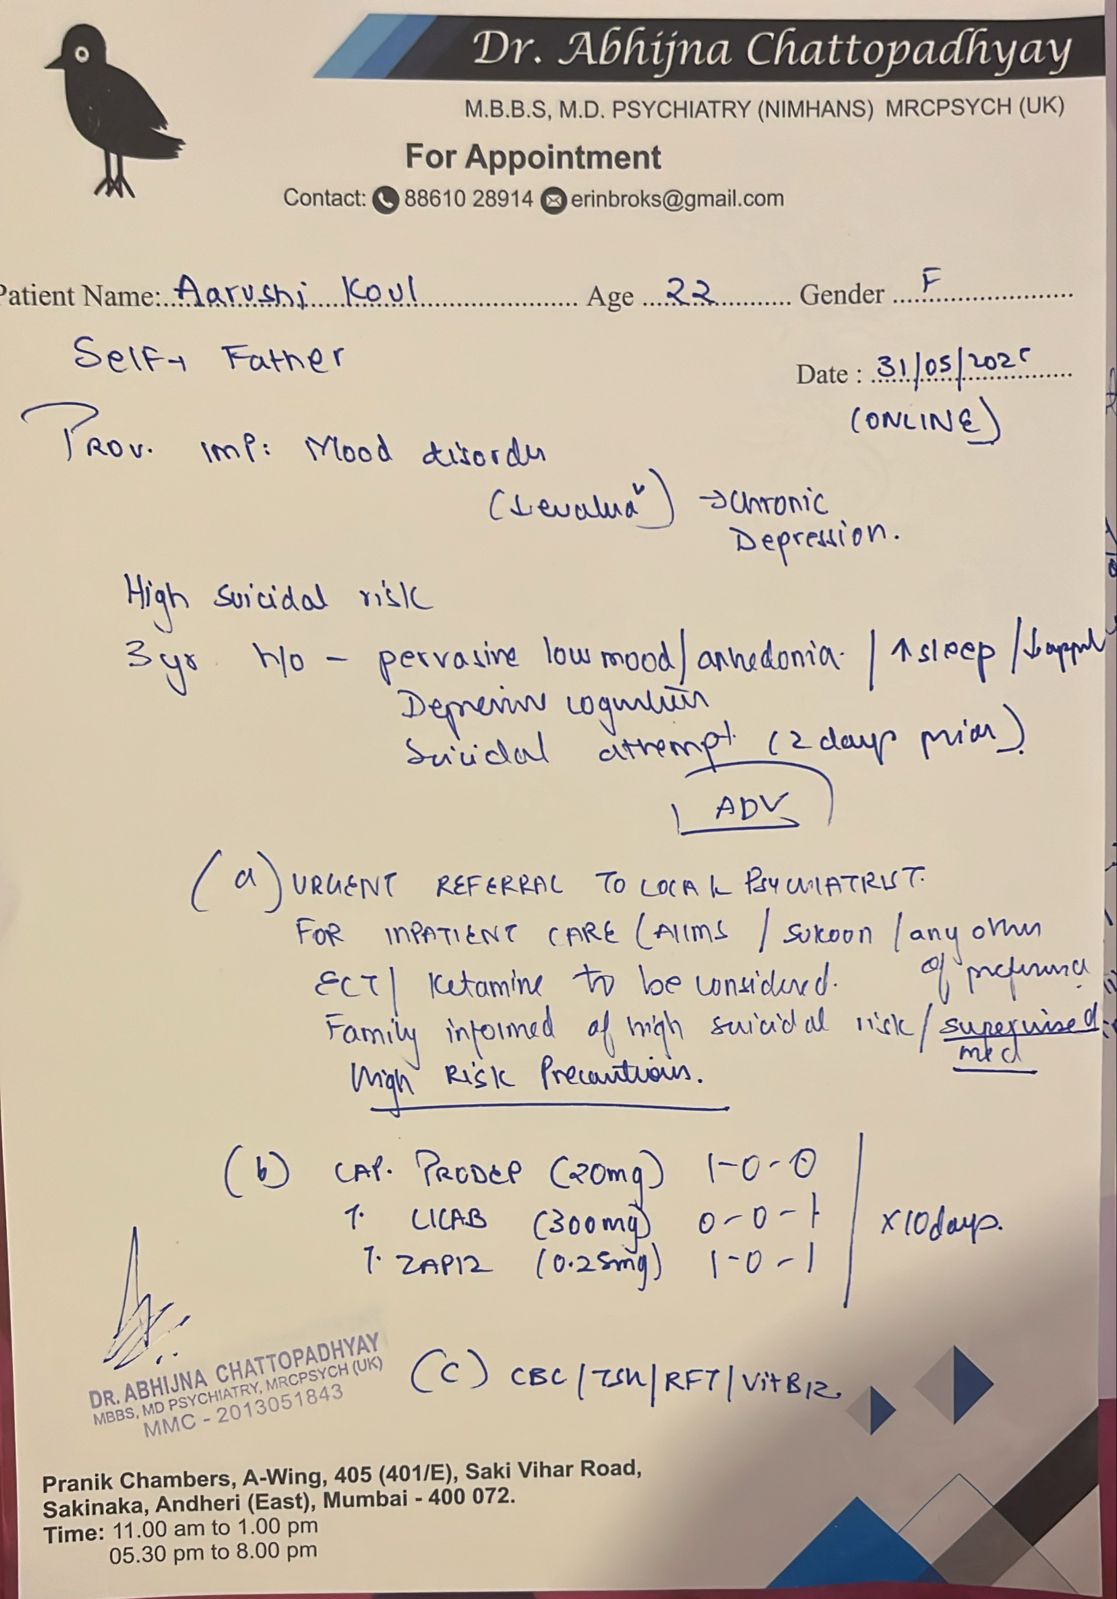 Dr. Abhijna Chattopadhyay
M.B.B.S, M.D. PSYCHIATRY (NIMHANS) MRCPSYCH (UK)
For Appointment
Contact: 88610 28914 erinbroks@gmail.com
Patient Name: Aarushi Koul Age 22 Gender F
Self + Father
Date : 31/05/2025
(ONLINE)
PROV. IMP: Mood disorder
→ Chronic
Depression.
High suicidal risk
3 yr h/o - pervasive low mood/anhedonia / ↑ sleep /
Depressive cognition
Suicidal attempt (2 days prior)
ADV
(a) URGENT REFERRAL TO LOCAL PSYCHIATRIST.
FOR INPATIENT CARE (AIIMS / sukoon / any other
of preference
ECT/ Ketamine to be considered.
Family informed of high suicidal risk / supervised
med
High Risk Precautions.
(b) CAP. PRODEP (20mg) 1-0-0
T. LICAB (300mg) 0-0-1
T. ZAPIZ (0.25mg) 1-0-1
x10days.
(C) CBC/TSH/RFT/Vit B12.
DR. ABHIJNA CHATTOPADHYAY
MBBS, MD PSYCHIATRY, MRCPSYCH (UK)
MMC - 2013051843
Pranik Chambers, A-Wing, 405 (401/E), Saki Vihar Road,
Sakinaka, Andheri (East), Mumbai - 400 072.
Time: 11.00 am to 1.00 pm
05.30 pm to 8.00 pm